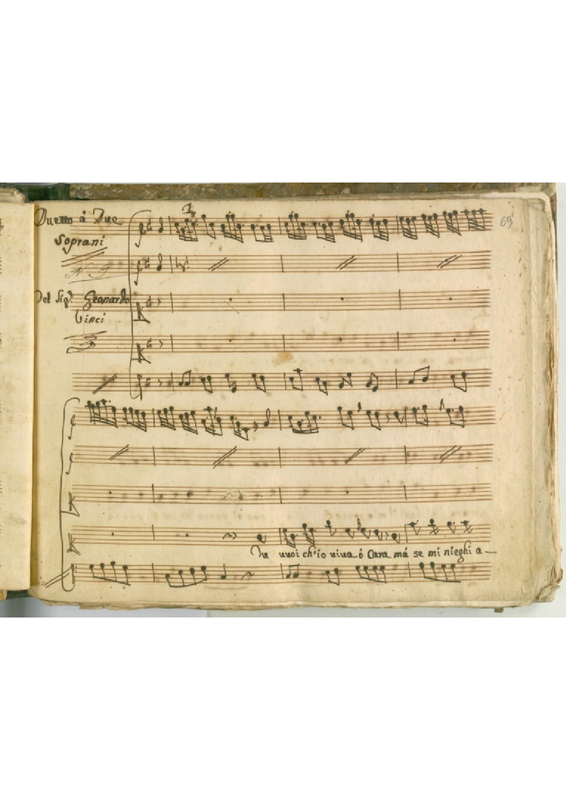 Duetto à Due
Soprani
Del Sigr. Leonardo
Vinci
69
Tu vuoi ch'io viva ò Cara, mà se mi nieghi a-